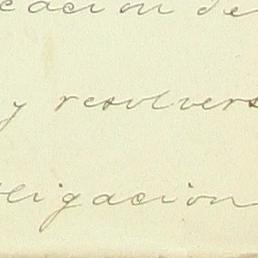 cacion de
y resolvers
ligacion